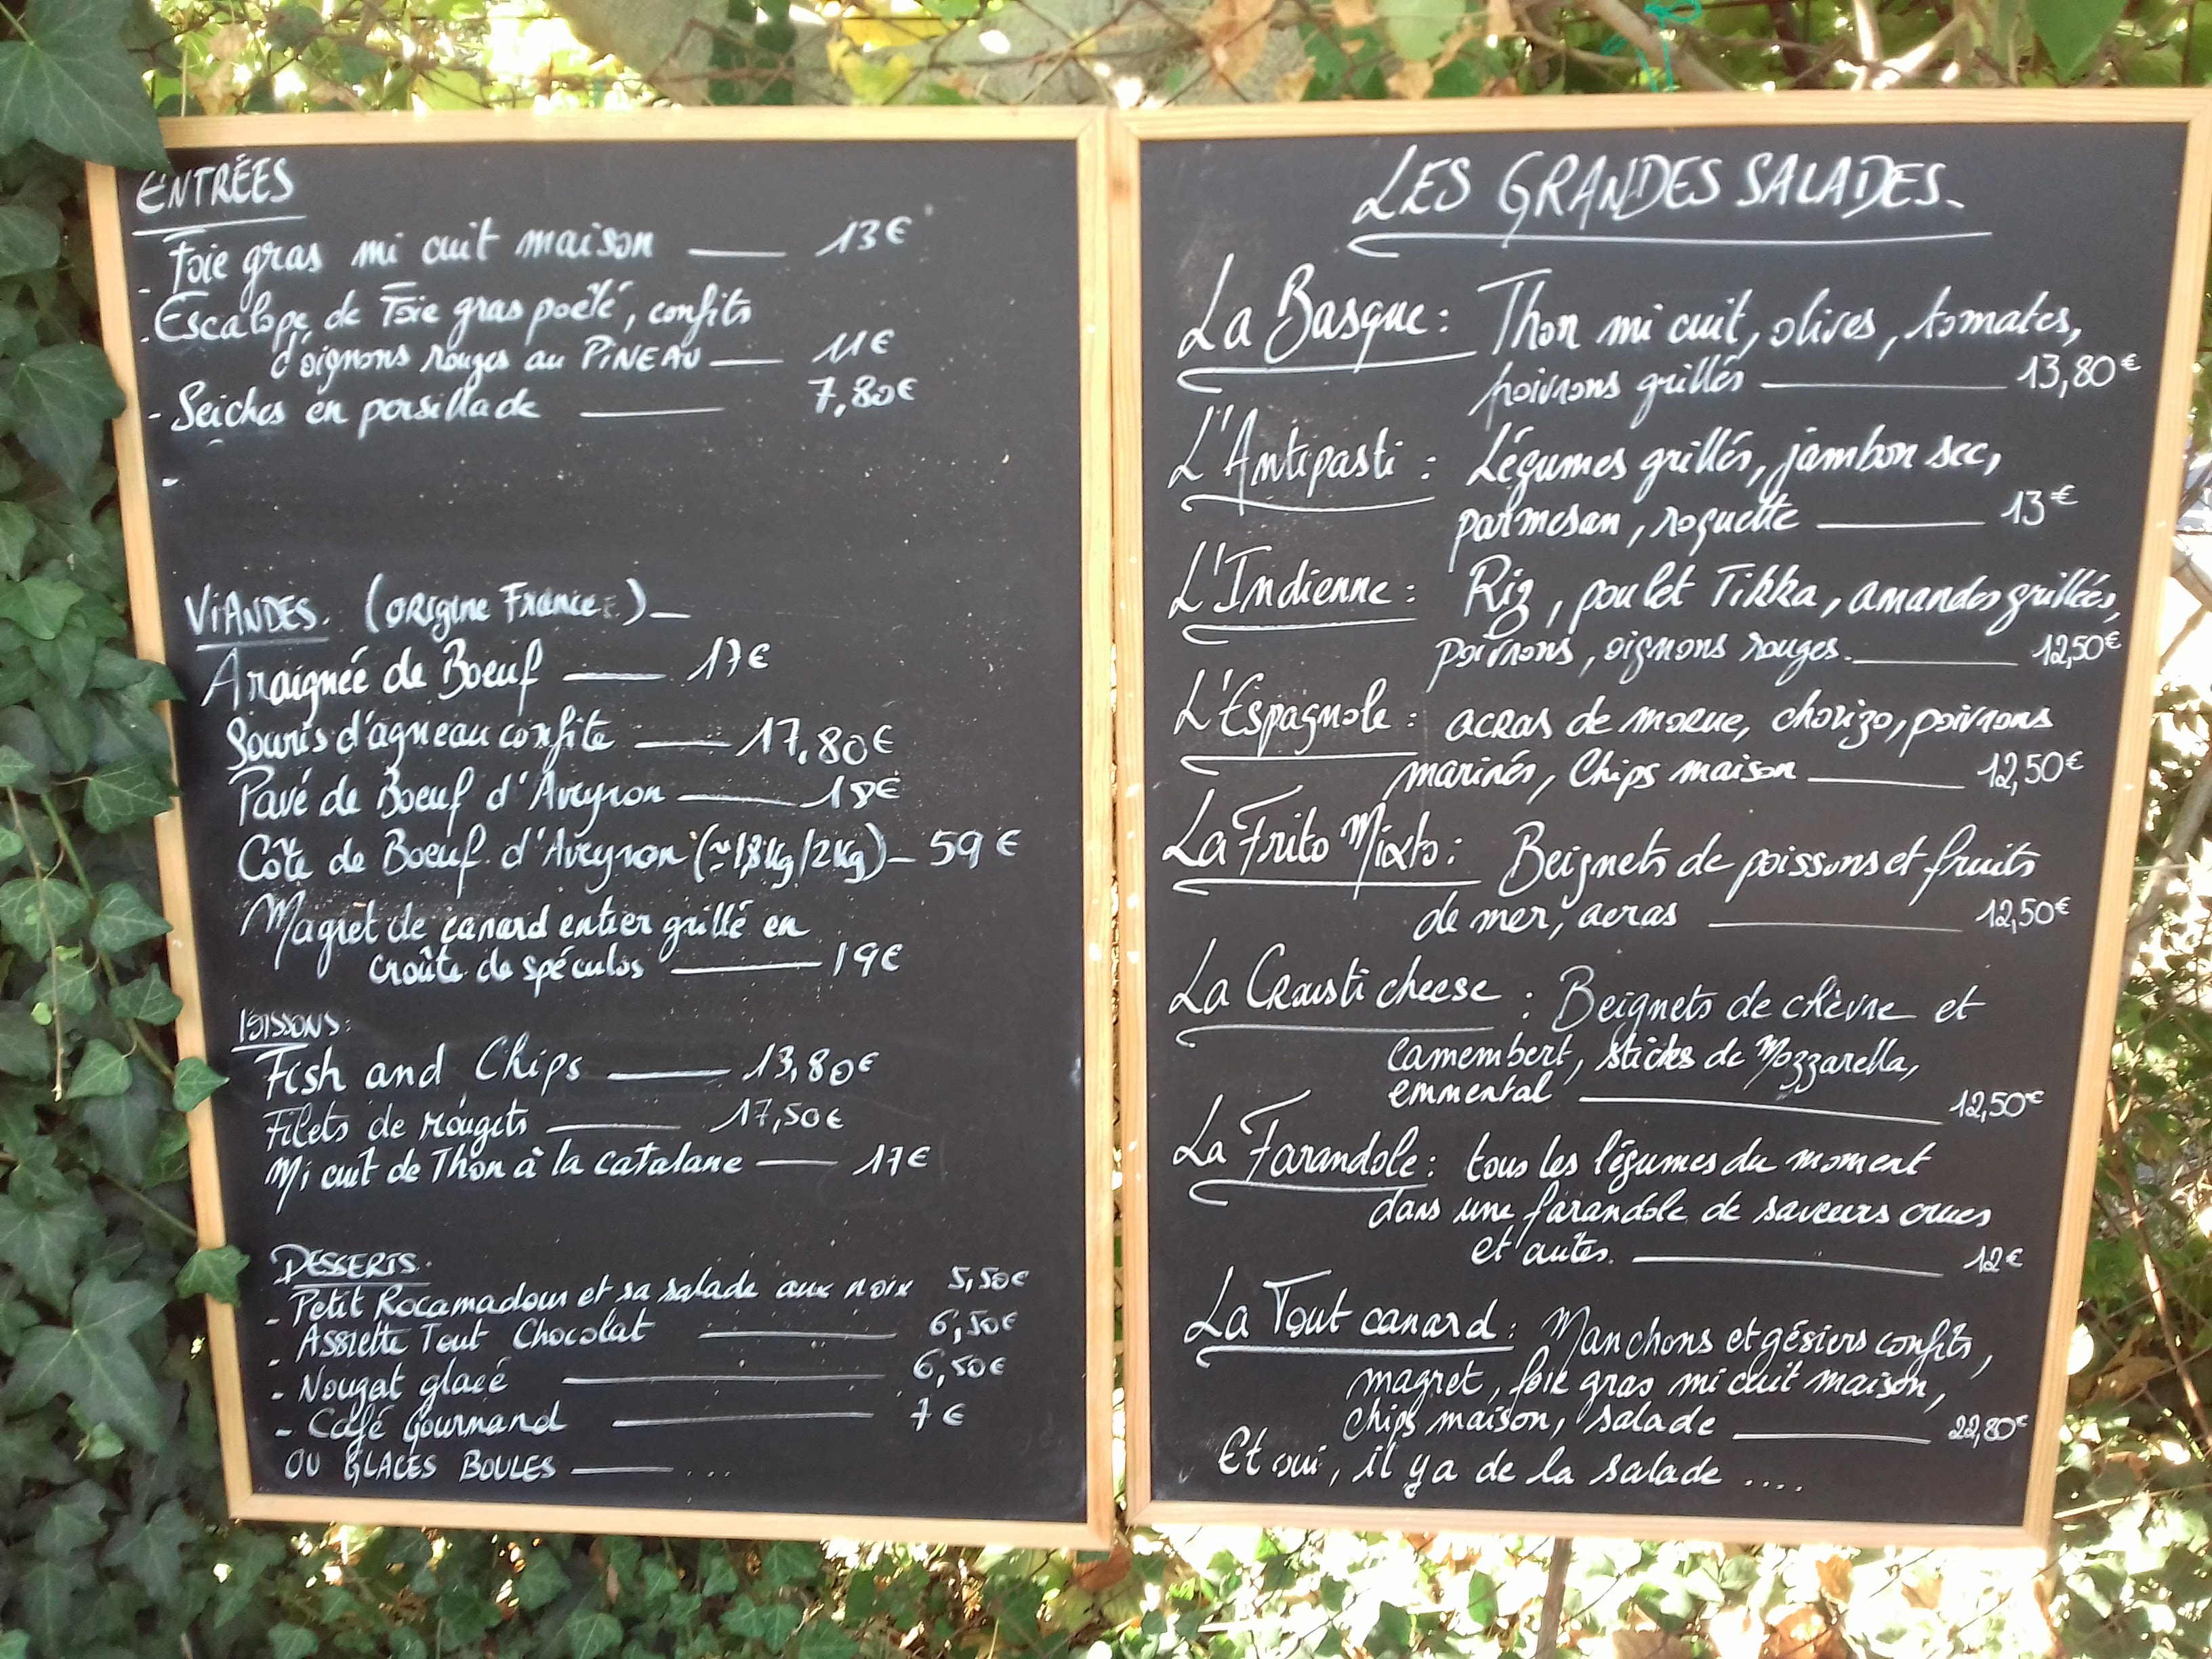 ENTRÉES
- Foie gras mi cuit maison — 13€
- Escalope de Foie gras poêlé, confits
d'oignons rouges au PiNEAU — 11€
- Seiches en persillade — 7,80€
-
ViANDES. (ORigine France) -
Araignée de Boeuf — 17€
Souris d'agneau confite — 17,80€
Pavé de Boeuf d'Aveyron — 18€
Côte de Boeuf d'Aveyron (~1,8Kg/2Kg) - 59€
Magret de canard entier grillé en
croûte de spéculos — 19€
POISSONS:
Fish and Chips — 13,80€
Filets de rougets — 17,50€
Mi cuit de Thon à la catalane — 17€
DESSERTS.
- Petit Rocamadour et sa salade aux noix 5,50€
- Assiette Tout Chocolat — 6,50€
- Nougat glacé — 6,50€
- Café Gourmand — 7€
OU GLACES BOULES — ...
LES GRANDES SALADES.
La Basque: Thon mi cuit, olives, tomates,
poivrons grillés — 13,80€
L'Antipasti: Légumes grillés, jambon sec,
parmesan, roquette — 13€
L'Indienne: Riz, poulet Tikka, amandes grillées,
poivrons, oignons rouges. — 12,50€
L'Espagnole: acras de morue, chorizo, poivrons
marinés, Chips maison — 12,50€
La Frito Mixto: Beignets de poissons et fruits
de mer, acras — 12,50€
La Crousti cheese: Beignets de chèvre et
camembert, sticks de Mozzarella,
emmental — 12,50€
La Farandole: tous les légumes du moment
dans une farandole de saveurs crues
et autes. — 12€
La Tout canard: Manchons et gésiers confits,
magret, foie gras mi cuit maison,
chips maison, salade — 22,80€
Et oui, il y a de la salade ....